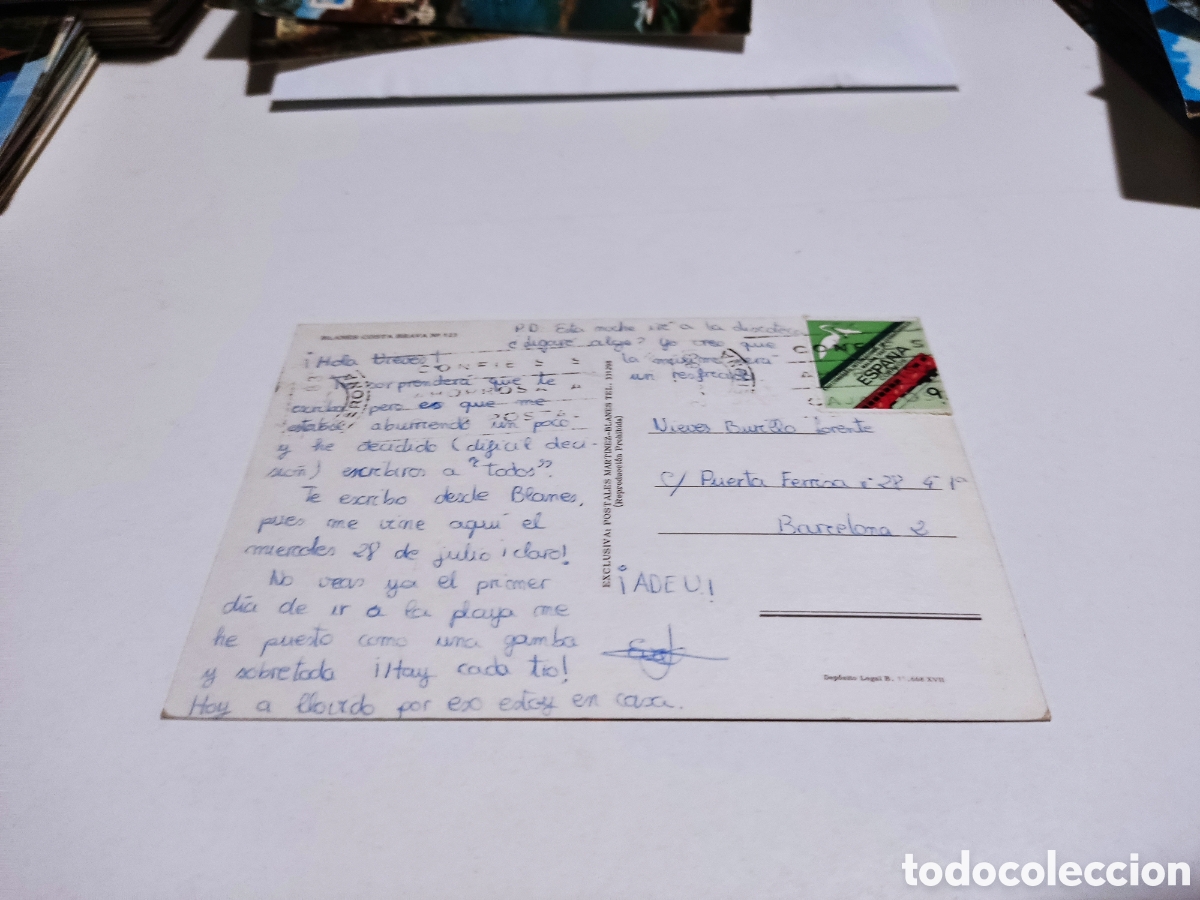 BLANES-COSTA BRAVA Nº 123
P.D: Esta noche iré a la discoteca
¿ligaré algo? Yo creo que
la
un resfriado
¡Hola Nieves!
Te sorprenderá que te
escriba pero es que me
estaba aburriendo un poco
y he decidido (dificil deci-
sión) escribiros a "todos".
Te escribo desde Blanes,
pues me vine aquí el
miercoles 28 de julio ¡claro!
No veas ya el primer
día de ir a la playa me
he puesto como una gamba
y sobretodo ¡¡Hay cada tío!
Hoy a llovido por eso estoy en casa.
EXCLUSIVA: POSTALES MARTINEZ-BLANES TEL.
(Reproducción Prohibida)
ESPAÑA
9
Nieves Burillo Lorente
C/ Puerta Ferrisa nº 28 4º 1ª
Barcelona 2
¡ADEU!
Depósito Legal B. XVII
todocoleccion.net